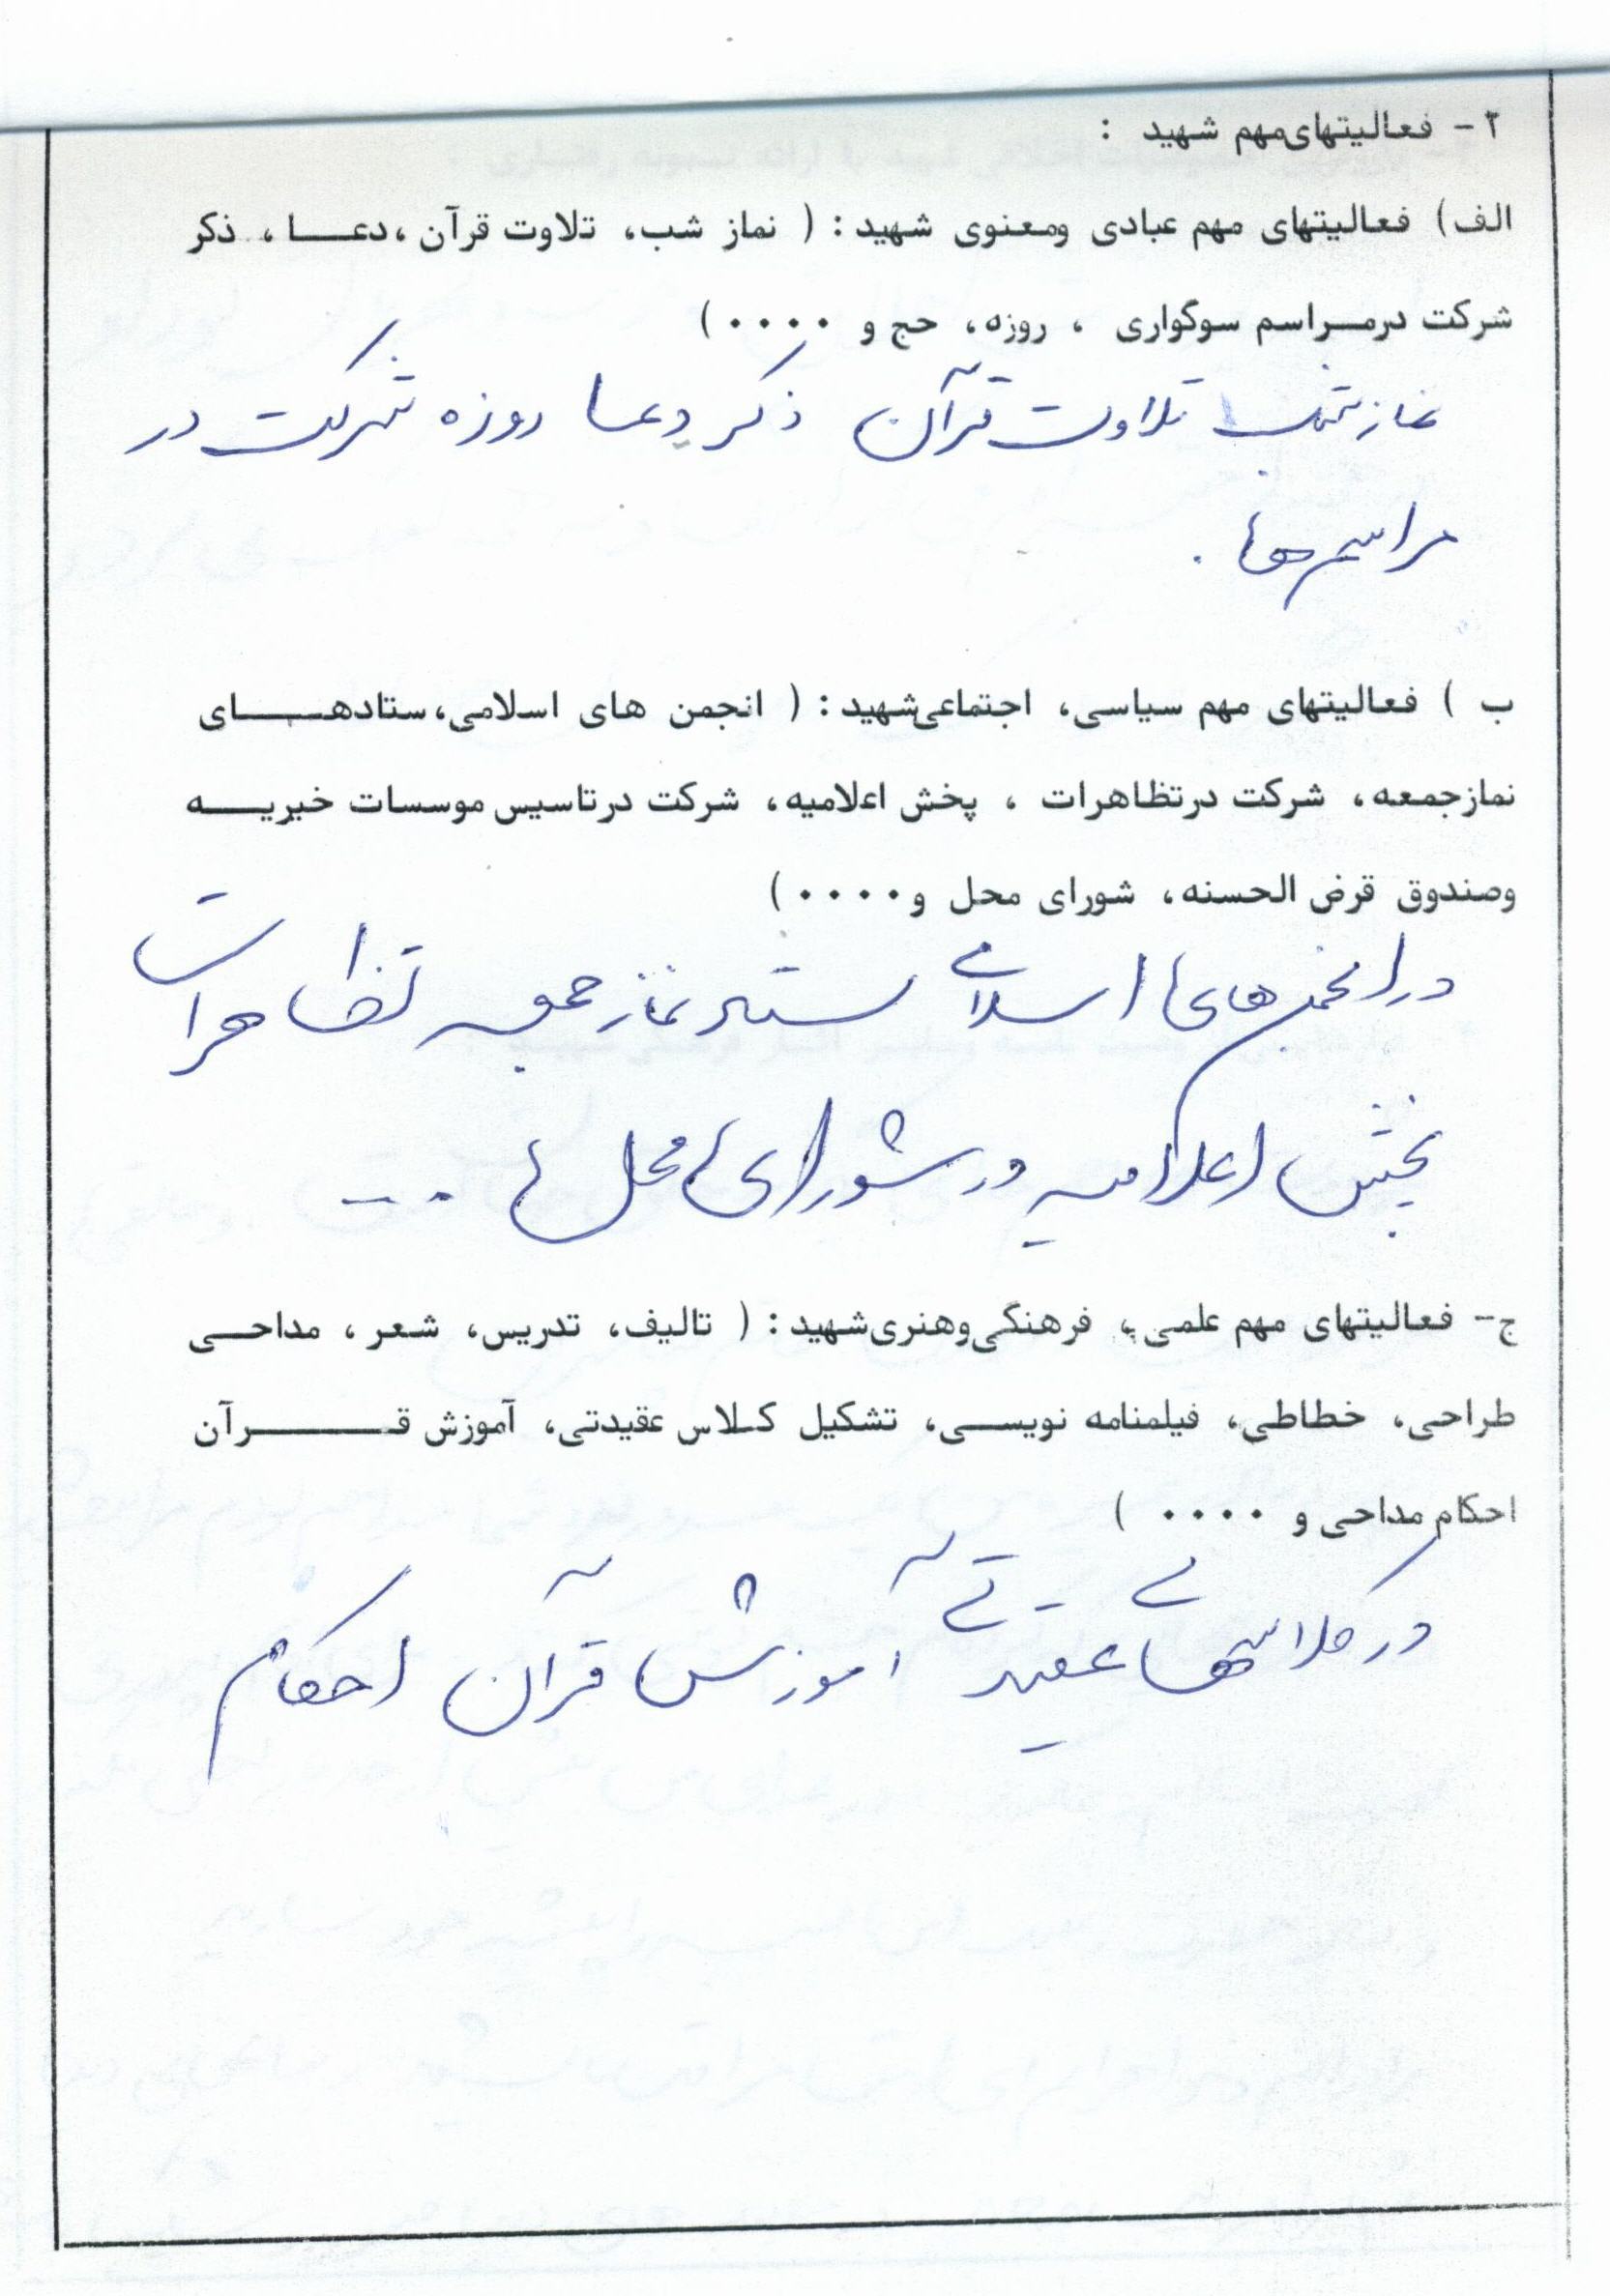 ۲- فعالیتهای مهم شهید :
الف) فعالیتهای مهم عبادی ومعنوی شهید : ( نماز شب، تلاوت قرآن ،دعـــا ، ذکر
شرکت درمــراسم سوگواری ، روزه، حج و ۰۰۰۰)
نماز شب تلاوت قرآن ذکر دعا روزه شرکت در
مراسم‌ها .
ب ) فعالیتهای مهم سیاسی، اجتماعی‌شهید : ( انجمن های اسلامی،ستادهـــــای
نمازجمعه، شرکت درتظاهرات ، پخش اعلامیه، شرکت درتاسیس موسسات خیریـــه
وصندوق قرض الحسنه، شورای محل و۰۰۰۰)
در انجمن‌های اسلامی ستاد نماز جمعه تظاهرات
پخش اعلامیه در شورای محل ها ...
ج- فعالیتهای مهم علمی، فرهنگی‌وهنری‌شهید : ( تالیف، تدریس، شعر ، مداحــی
طراحی، خطاطی، فیلمنامه نویســی، تشکیل کـلاس عقیدتی، آموزش قــــــرآن
احکام مداحی و ۰۰۰۰ )
در کلاسهای عقیدتی آموزش قرآن احکام